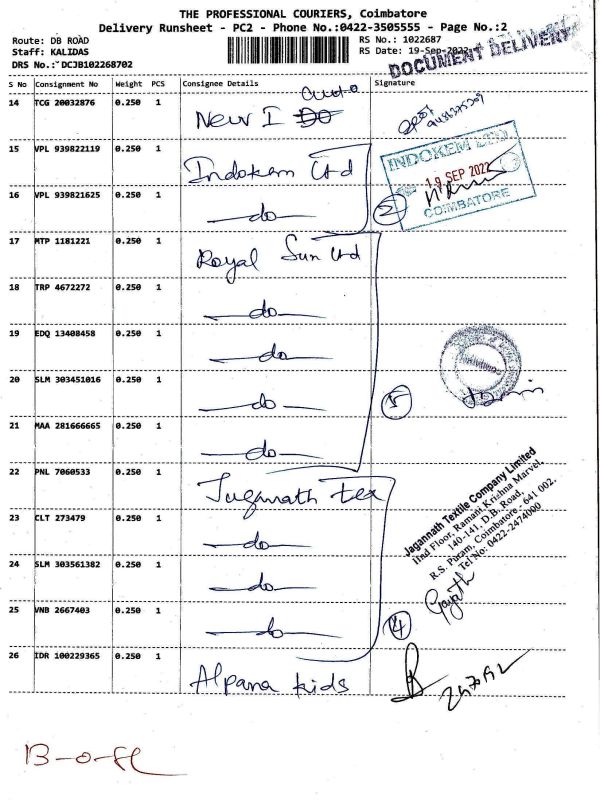 THE PROFESSIONAL COURIERS, Coimbatore
Delivery Runsheet - PC2 - Phone No.:0422-3505555 - Page No.:2
Route: DB ROAD
RS No.: 1022687
Staff: KALIDAS
RS Date: 19-Sep-2022
DOCUMENT DELIVERY
DRS No.: DCJB102268702
S No Consignment No Weight PCS Consignee Details Signature
14 TCG 20032876 0.250 1 New I auto
15 VPL 939822119 0.250 1 Indokem Ltd
INDOKEM LTD
19 SEP 2022
COIMBATORE
16 VPL 939821625 0.250 1 —do— 2
17 MTP 1181221 0.250 1 Royal Sun Ltd
18 TRP 4672272 0.250 1 —do—
19 EDQ 13408458 0.250 1 —do—
20 SLM 303451016 0.250 1 —do— 5
21 MAA 281666665 0.250 1 —do—
22 PNL 7060533 0.250 1 Jagannath tex
Jagannath Textile Company Limited
IInd Floor, Ramani Krishna Marvel,
140-141, D.B. Road,
R.S. Puram, Coimbatore - 641 002.
Tel No: 0422-2474000
23 CLT 273479 0.250 1 —do—
24 SLM 303561382 0.250 1 —do—
25 VNB 2667403 0.250 1 —do— 4
26 IDR 100229365 0.250 1 Alpana kids